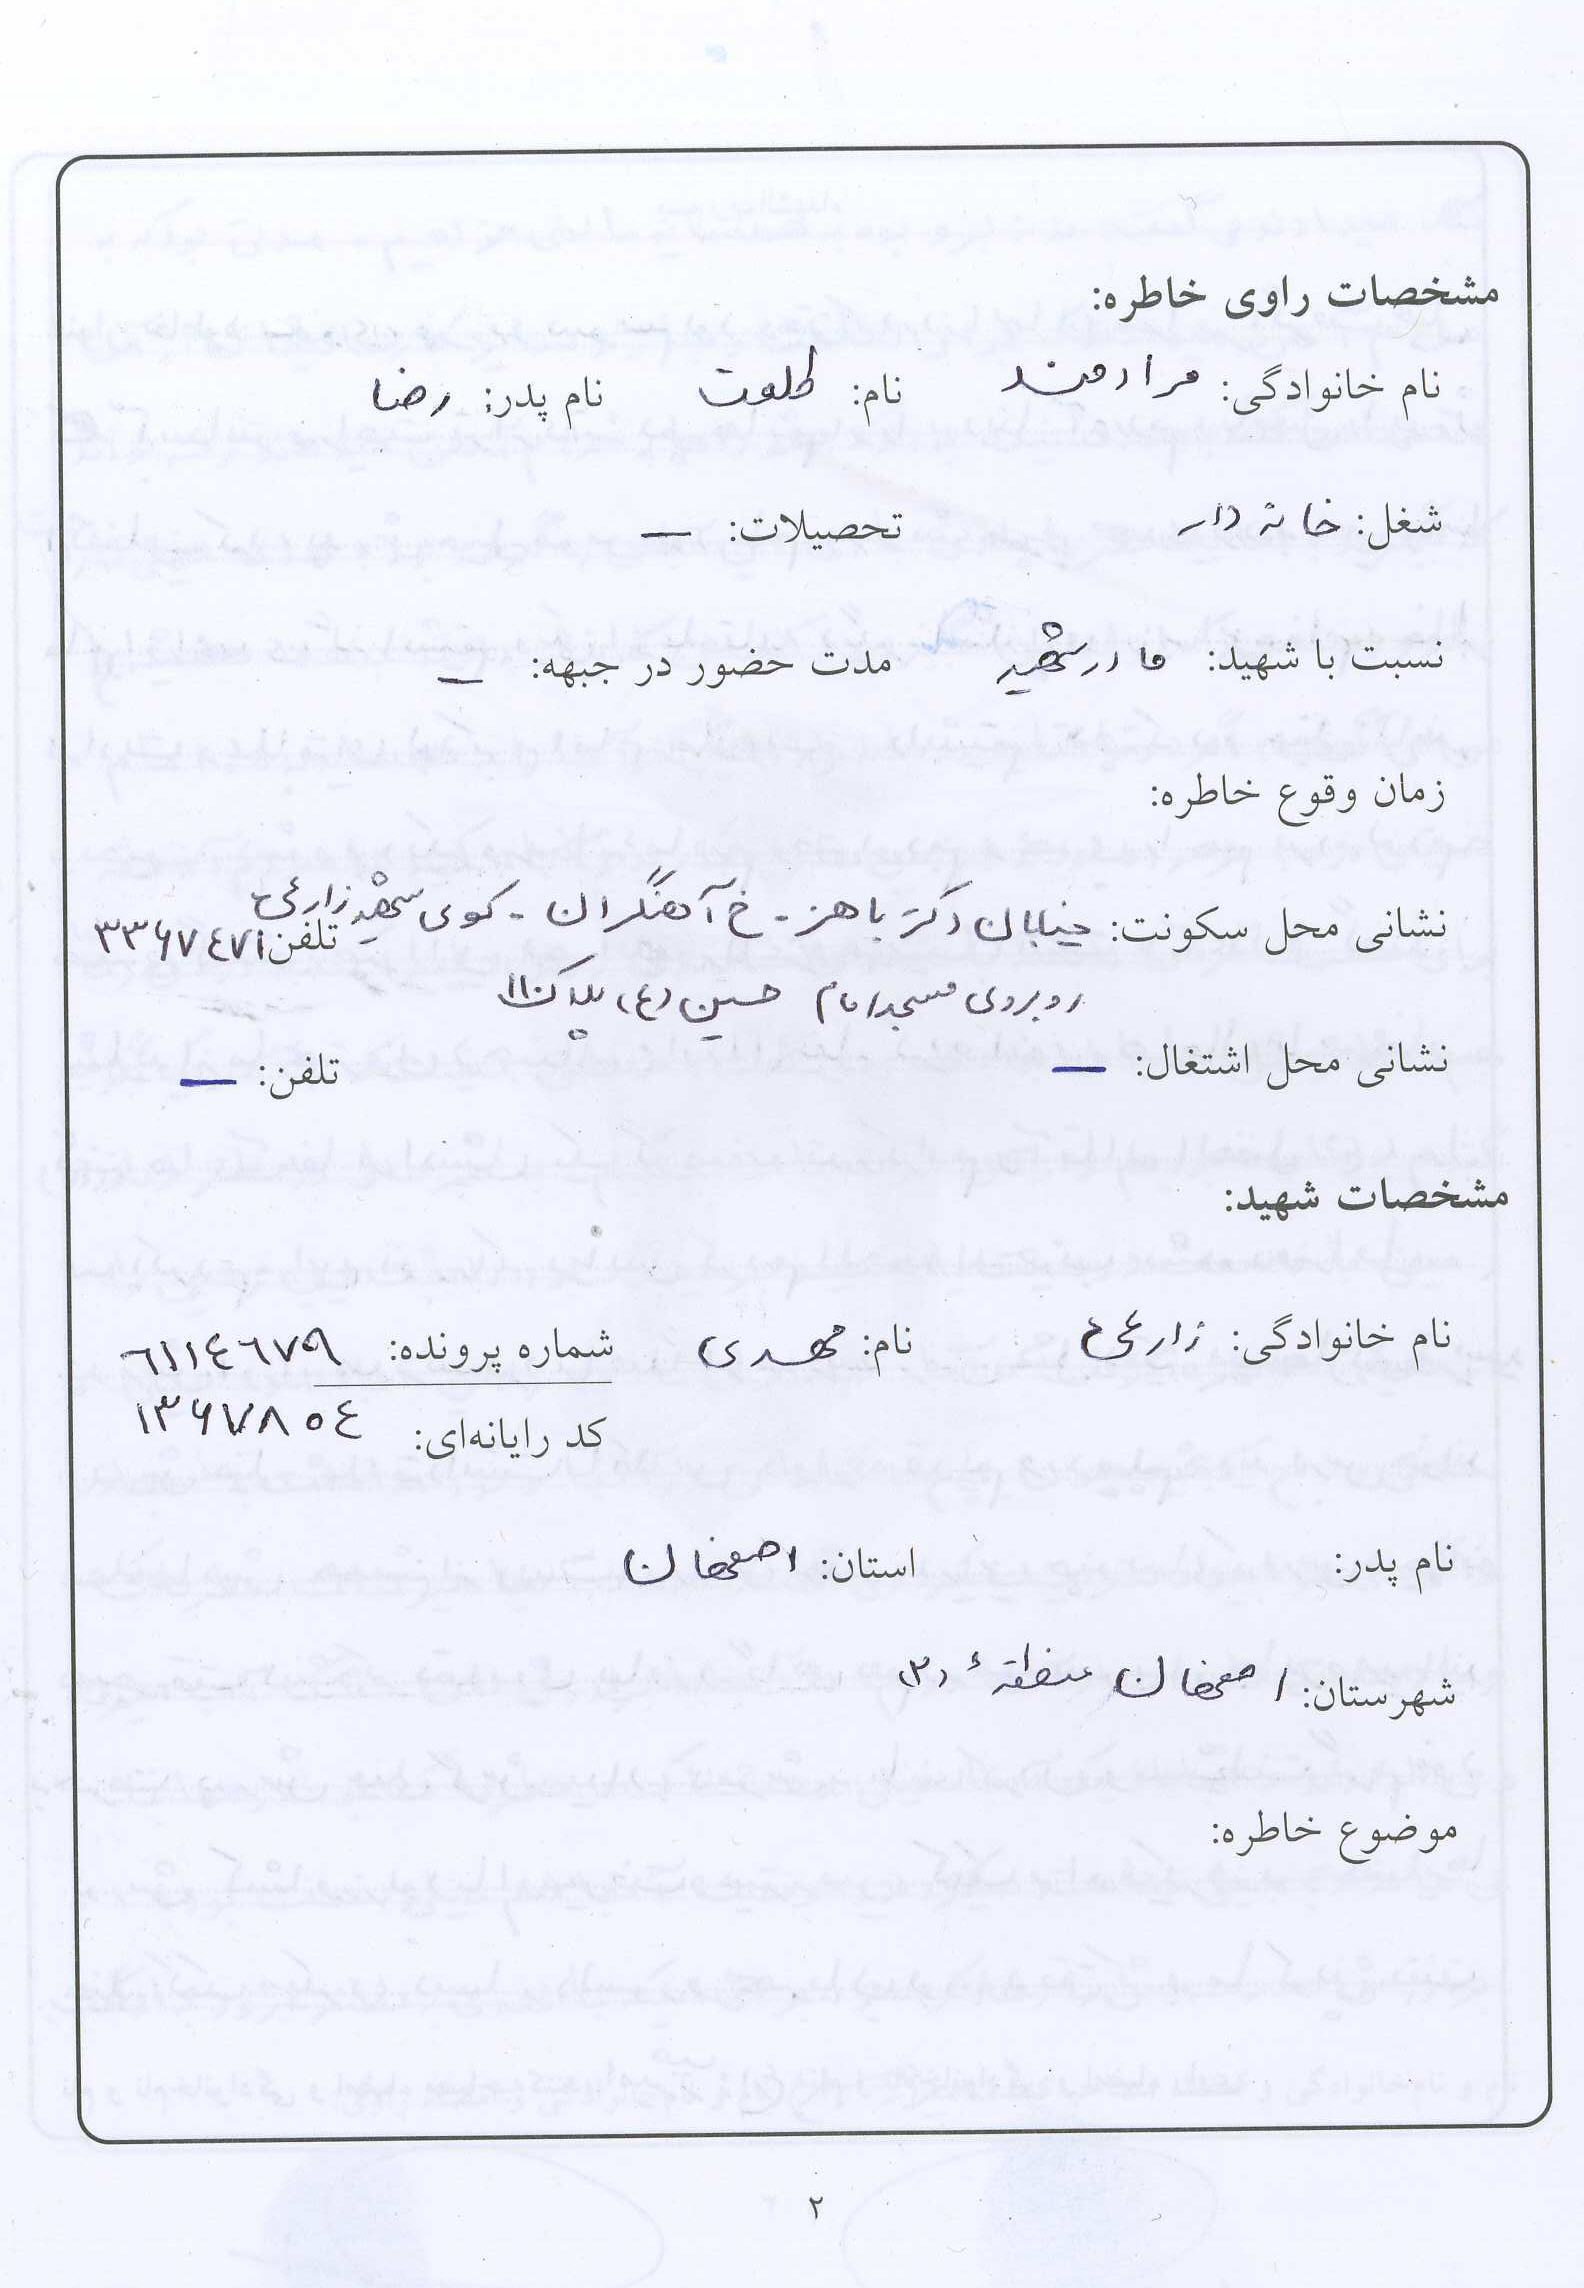 مشخصات راوی خاطره:
نام خانوادگی: مرادمند نام: طلعت نام پدر: رضا
شغل: خانه دار تحصیلات: —
نسبت با شهید: مادر شهید مدت حضور در جبهه: —
زمان وقوع خاطره:
نشانی محل سکونت: خیابان دکتر باهنر - خ آهنگران - کوی شهید زارعی تلفن ۳۳۶۷۴۷۱
روبروی مسجد امام حسین (ع) پلاک ۱۱
نشانی محل اشتغال: — تلفن: —
مشخصات شهید:
نام خانوادگی: زارعی نام: مهدی شماره پرونده: ۶۱۱۴۶۷۹
کد رایانه‌ای: ۱۳۶۷۸۵۴
نام پدر: استان: اصفهان
شهرستان: اصفهان منطقهٔ (۳)
موضوع خاطره:
۲